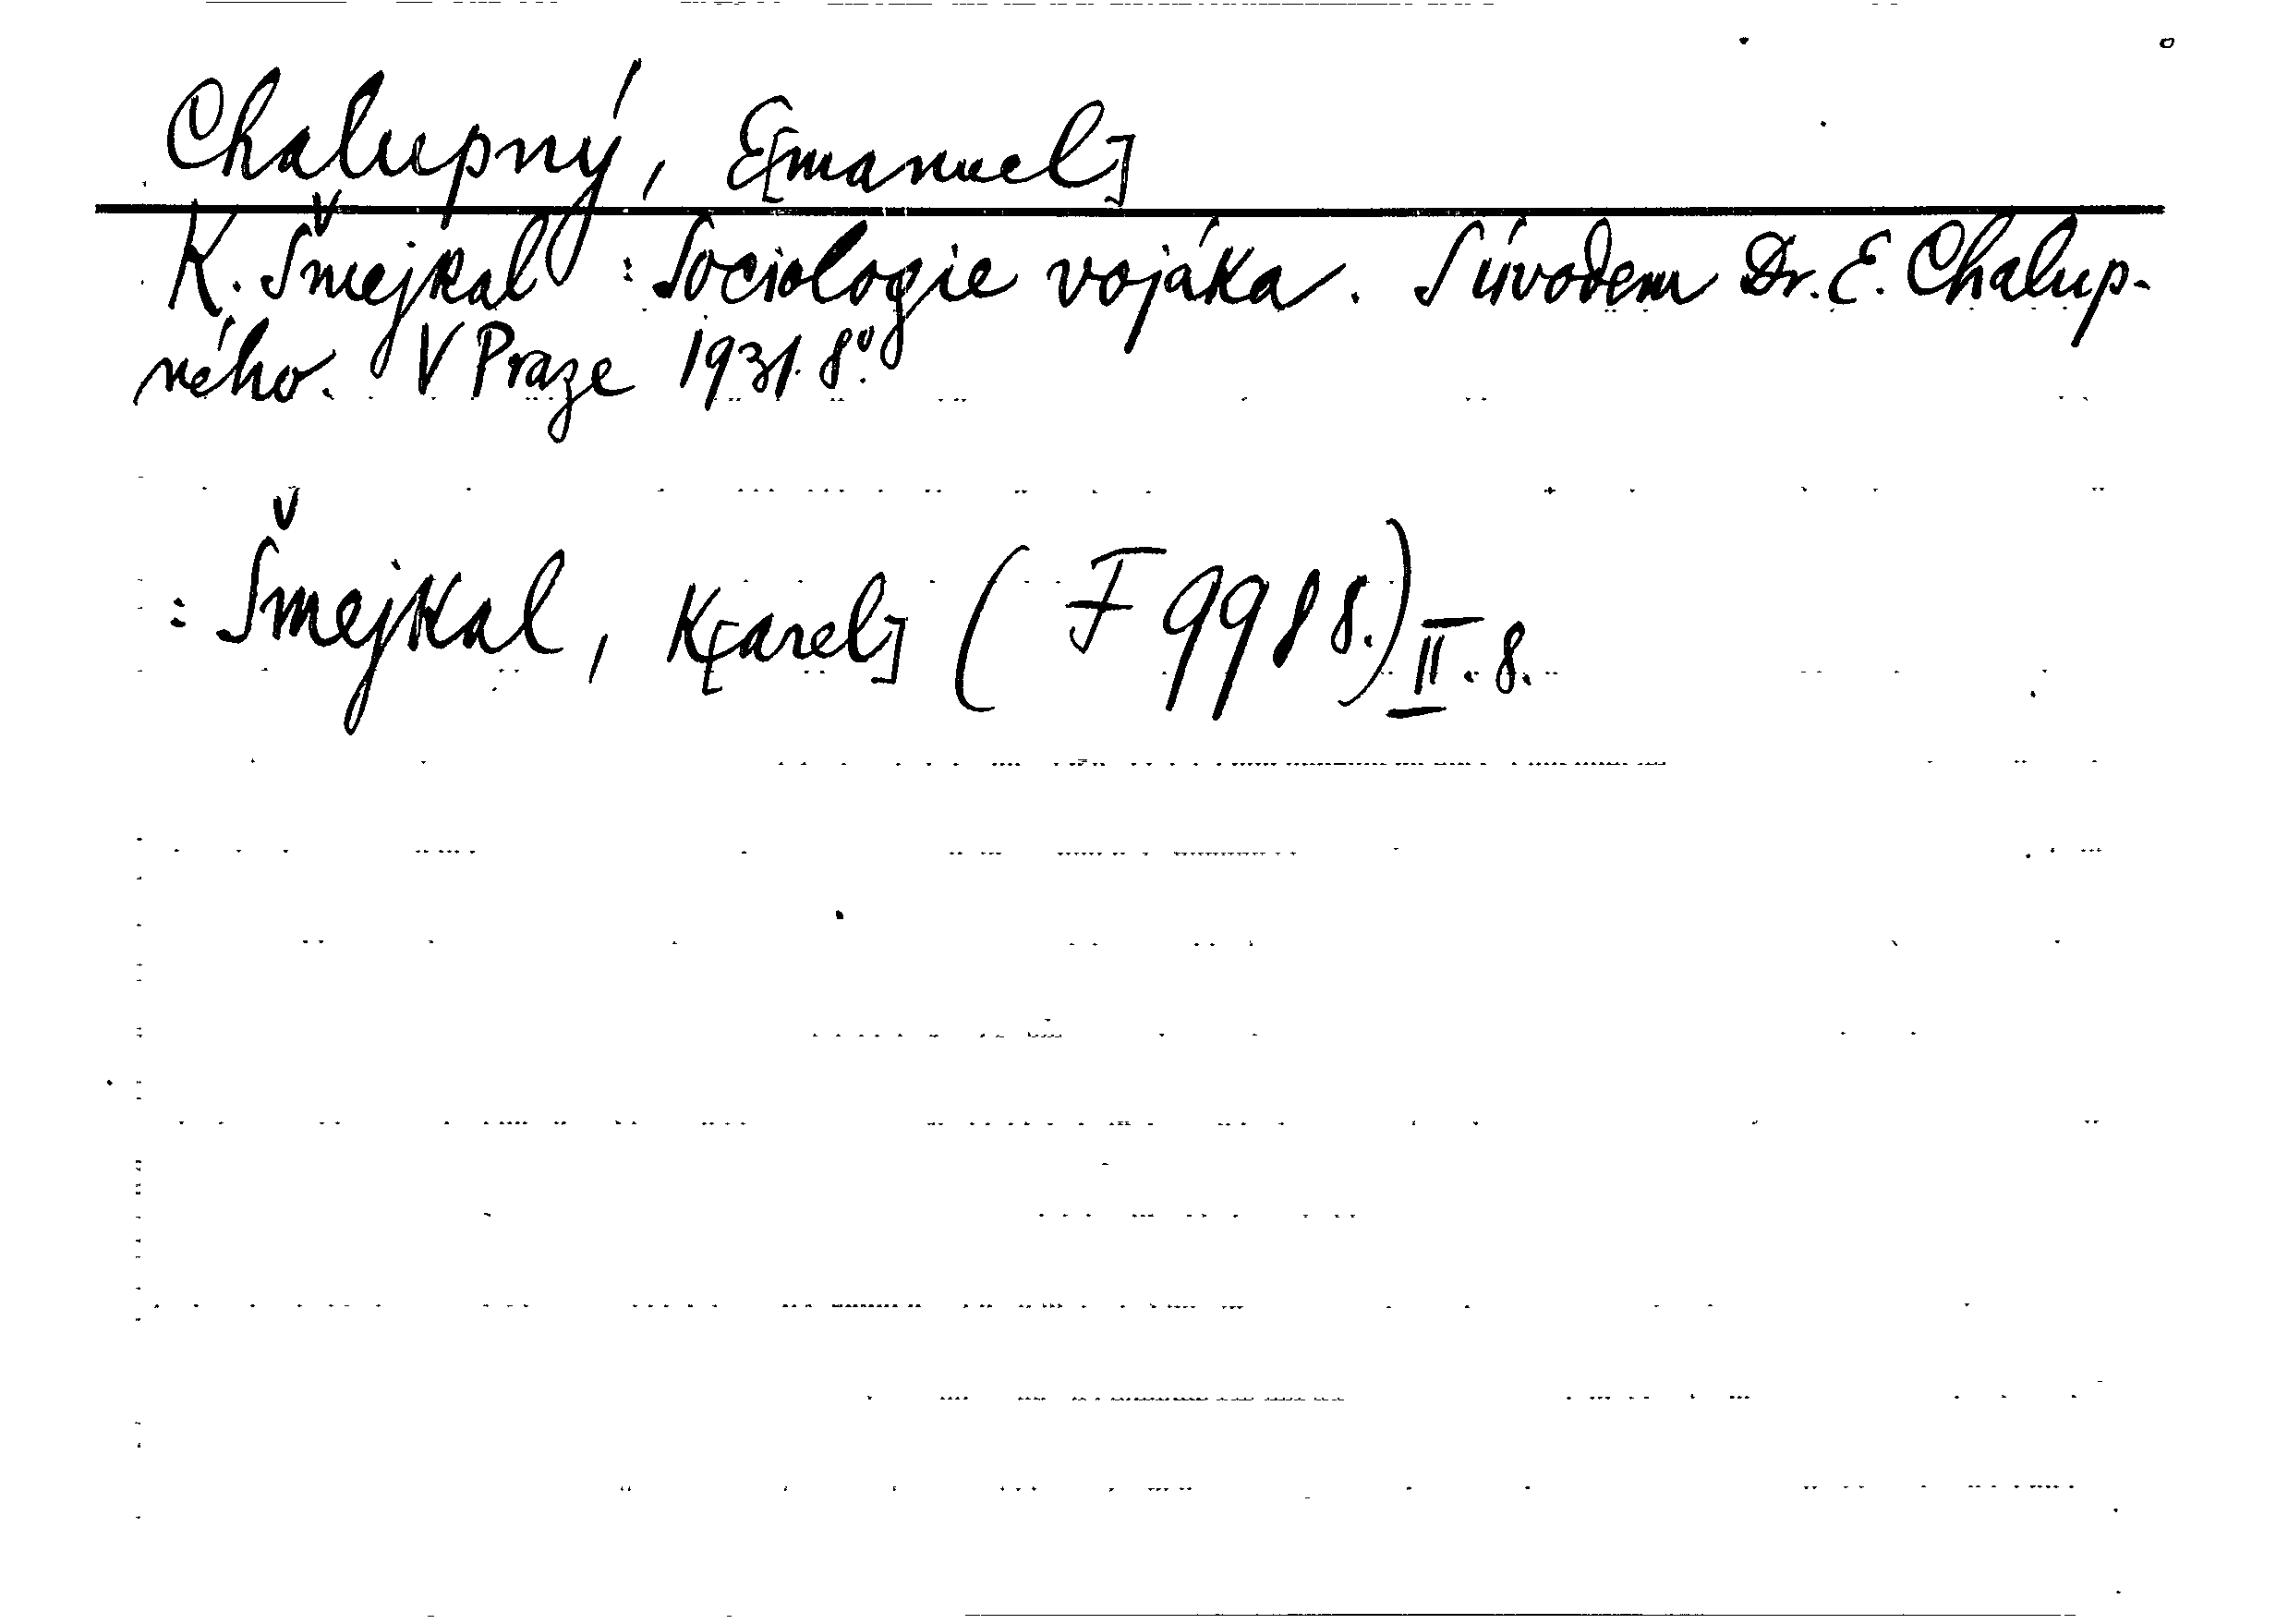 Chalupný, E[manuel]
K. Šmejkal : Sociologie vojáka. S úvodem Dr. E. Chalup-
ného. V Praze 1931. 8°.
: Šmejkal, K[arel] (F 9988.) II. 8.